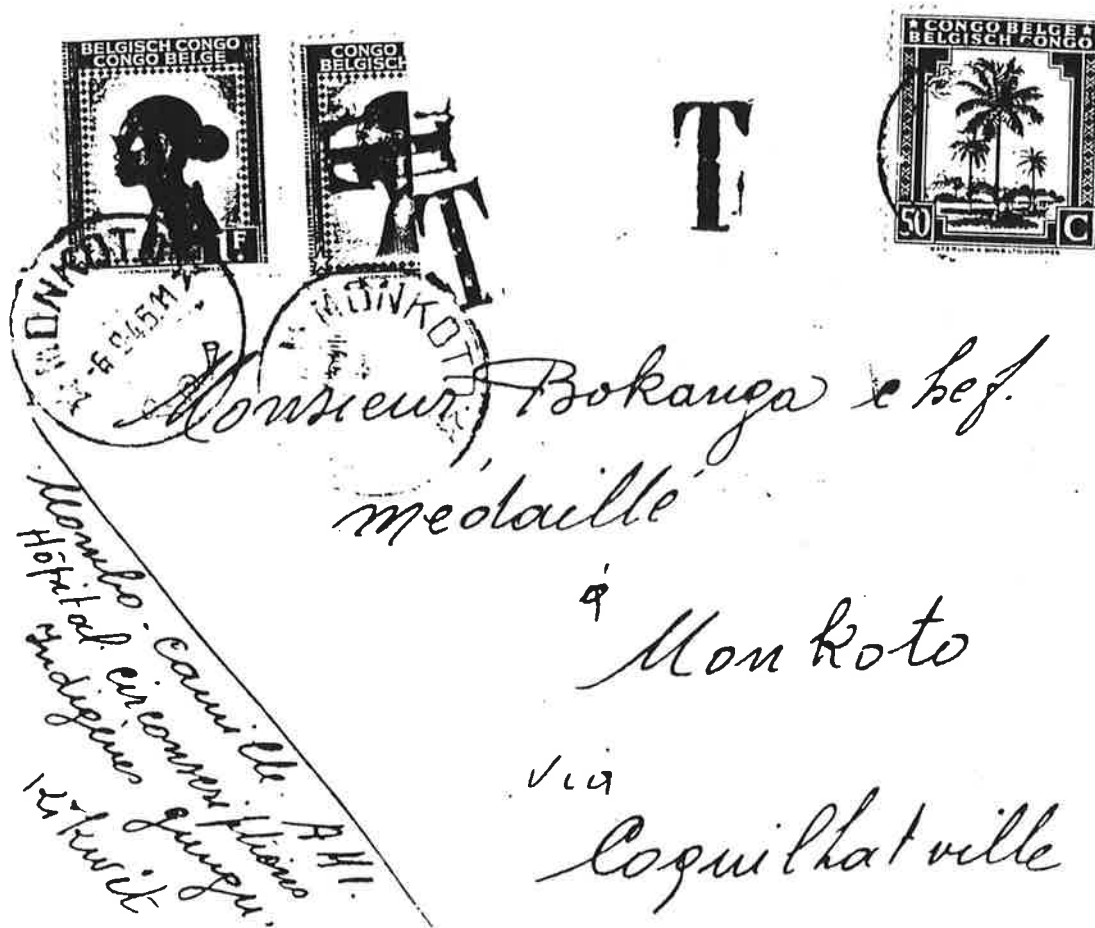 BELGISCH CONGO
CONGO BELGE
1F.
CONGO
BELGISCH
T
T
★ CONGO BELGE ★
BELGISCH CONGO
50 C
WATERLOW & SONS LTD LONDRES
MONKOTO
-6 9 45.11
MONKOTO
Monsieur Bokanga chef.
médaillé
à
Monkoto
via
Coquilhatville
Mombo. camille. A H I.
Hôpital. circonscriptions
Indigènes gungu.
Kikwit